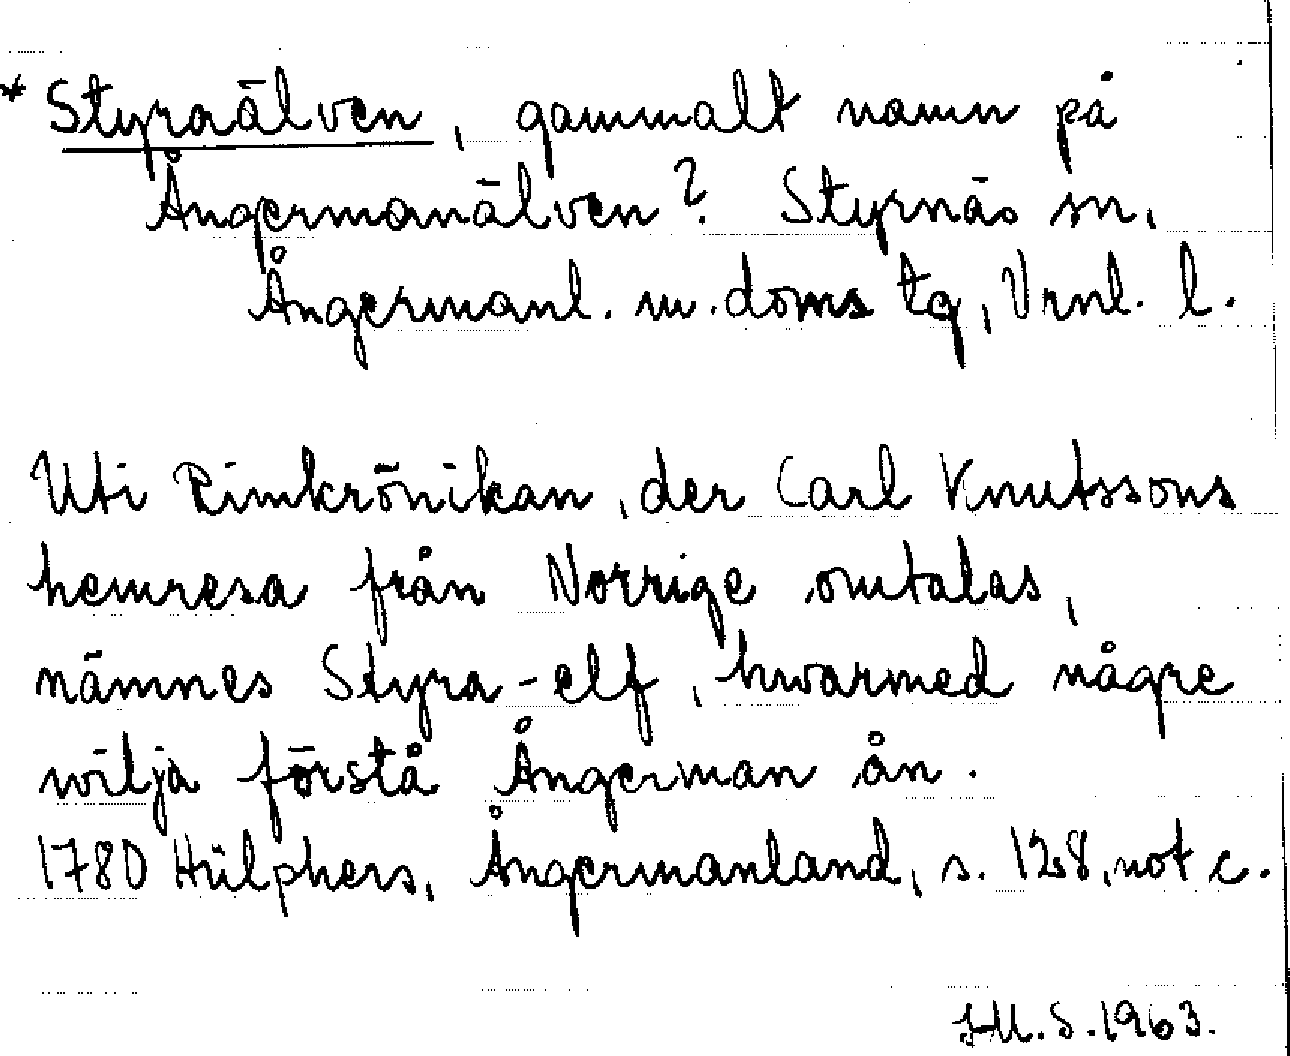 * Styraälven, gammalt namn på
Ångermanälven? Styrnäs sn,
Ångermanl. m. doms tg, Vrnl. l.
Uti Rimkrönikan, der Carl Knutssons
hemresa från Norrige omtalas,
nämnes Styra-elf, hwarmed några
wilja förstå Ångerman ån.
1780 Hülphers, Ångermanland, s. 128, not c.
J.M.S. 1963.